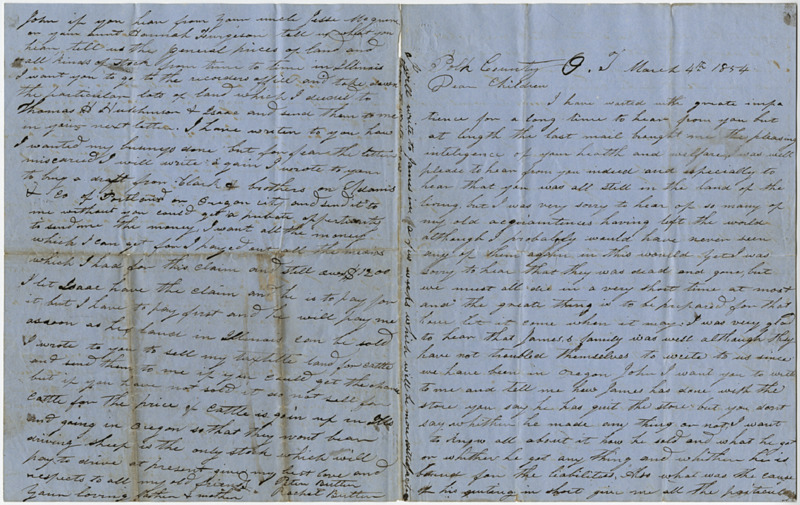 Polk County O. T March 4th 1854
Dear Children
I have waited with greate impa
tience for a long time to hear from you but
at length the last mail braught me the pleasing
inteligence of your health and welfare, was well
please to hear from you indeed and especially to
hear that you was all still in the land of the
living but I was very sorry to hear of so many of
my old acquaintances having left the world
although I probably would have never seen
any of them again in this world yet I was
sorry to hear that they was dead and gone, but
we must all die in a very short time at most
and the greate thing is to be prepared for that
hour let it come when it may. I was very glad
to hear that James,s family was well although they
have not troubled themselves to write to us since
we have been in Oregon John I want you to write
to me and tell me how James has done with the
store you say he has quit the store but you dont
say whether he made any thing or not I want
to know all about it how he sold and what he got
or whether he got any thing and whether he is
bound for the liabilities. Also what was the cause
of his quiting in short give me all the particulars
John if you hear from your uncle Jesse
or your aunt Hannah Furgeson tell us what you
hear, tell us the general prices of land and
all kinds of stock from time to time in Illinois
I want you to go to the recorders office and take down
the particular lots of land which I deeded to
Thomas H Hutchinson & Isaac and send them to me
in your next letter. I have writen to you how
I wanted my buisness done but for fear the letters
miscaried I will write again I wrote to you
to buy a draft from Clark & brothers on Adams
& Co of Portland or Oregon city and send it to
me without you could get a private oppertunity
to send me the money I want all the money
which I can get for I payed out all the means
which I had for this claim and still owe $1200
I let Isaac have the claim and he is to pay for
it but I have to pay first and he will pay me
as soon as his land in Illinois can be sold
I wrote to you to sell my land for cattle
and send them to me if you could get the chance
but if you have not sold it do not sell for
cattle for the price of cattle is goin up in Ills
and going in Oregon so that they wont bear
driving sheep is the only stock which will
pay to drive at present give my best love and
respects to all my old friends Peter Butler
Your loving father & mother Rachel Butler
I will write to James in a few weeks which will be more satisfactory